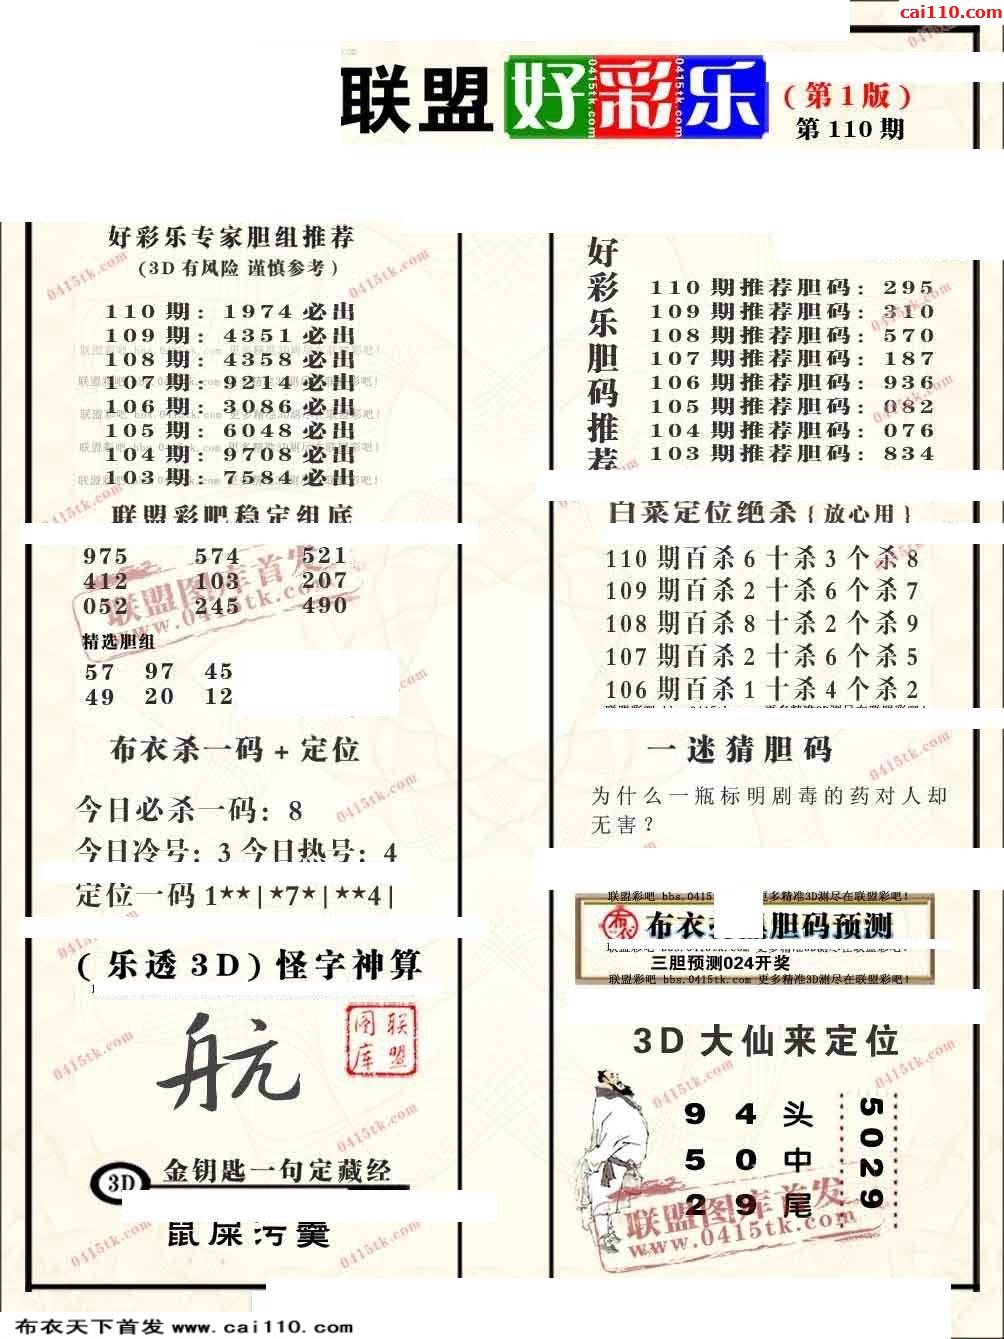 cai110.com
联盟 好彩乐 (第1版)
第110期
好彩乐专家胆组推荐
(3D有风险 谨慎参考)
110期: 1974必出
109期: 4351必出
108期: 4358必出
107期: 9214必出
106期: 3086必出
105期: 6048必出
104期: 9708必出
103期: 7584必出
联盟彩吧稳定组底
975 574 521
412 103 207
052 245 490
精选胆组
57 97 45
49 20 12
布衣杀一码+定位
今日必杀一码: 8
今日冷号: 3 今日热号: 4
定位一码 1**|*7*|**4|
(乐透3D)怪字神算
航
联盟图库
3D 金钥匙一句定藏经
鼠屎污羹
好彩乐胆码推荐
110期推荐胆码: 295
109期推荐胆码: 310
108期推荐胆码: 570
107期推荐胆码: 187
106期推荐胆码: 936
105期推荐胆码: 082
104期推荐胆码: 076
103期推荐胆码: 834
白菜定位绝杀{放心用}
110期百杀6十杀3个杀8
109期百杀2十杀6个杀7
108期百杀8十杀2个杀9
107期百杀2十杀6个杀5
106期百杀1十杀4个杀2
一迷猜胆码
为什么一瓶标明剧毒的药对人却
无害?
联盟彩吧 bbs.0415 更多精准3D测尽在联盟彩吧!
布衣 布衣 胆码预测
三胆预测024开奖
联盟彩吧 bbs.0415tk.com 更多精准3D测尽在联盟彩吧!
3D大仙来定位
9 4 头
5 0 中
2 9 尾
5029
联盟图库首发
www.0415tk.com
布衣天下首发 www.cai110.com